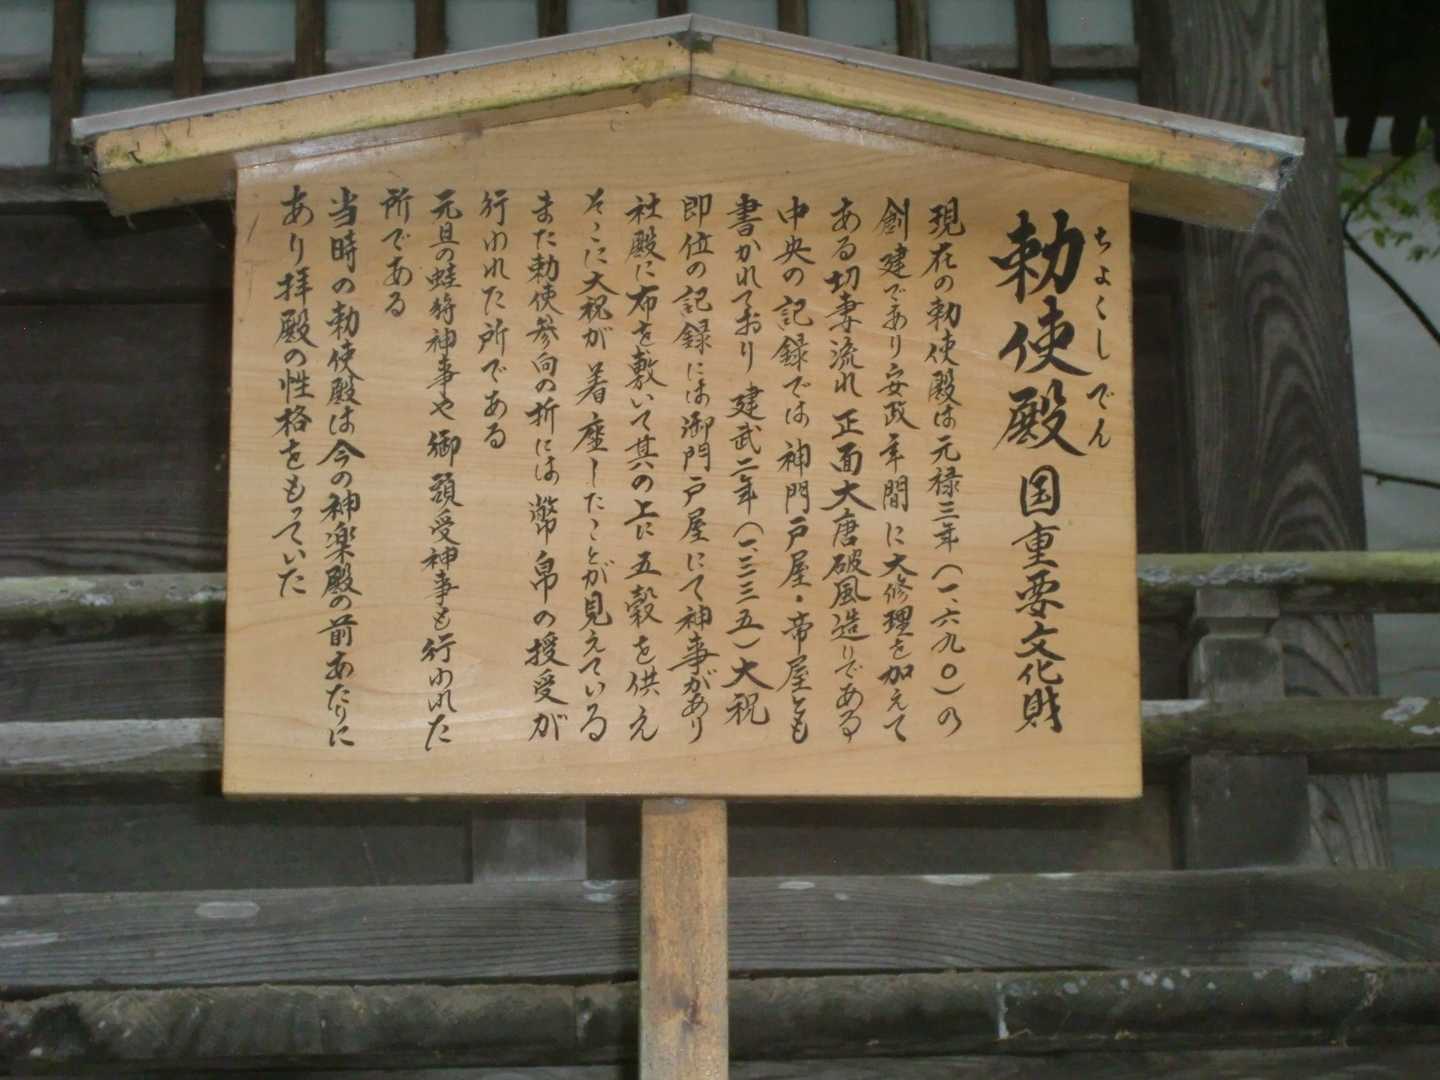 ちょくしでん
勅使殿 国重要文化財
現在の勅使殿は元禄三年(一、六九〇)の
創建であり安政年間に大修理を加えて
ある切妻流れ正面大唐破風造りである
中央の記録では神門戸屋・帝屋とも
書かれており 建武二年(一三三五)大祝
即位の記録には御門戸屋にて神事があり
社殿に布を敷いて其の上に五穀を供え
そこに大祝が着座したことが見えている
また勅使参向の折には幣帛の授受が
行われた所である
元旦の蛙狩神事や御頭受神事も行われた
所である
当時の勅使殿は今の神楽殿の前あたりに
あり拝殿の性格をもっていた